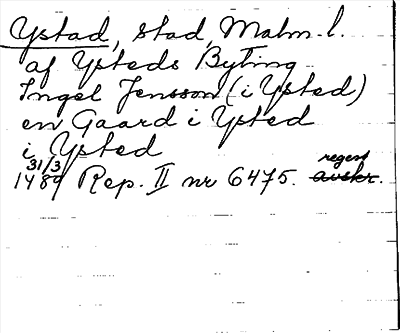 Ystad, stad, Malm. l.
af Ysteds Byting
Ingel Jensson (i Ysted)
en Gaard i Ysted
i Ysted
31/3 regest
1489 Rep. II nr 6475. avskr.